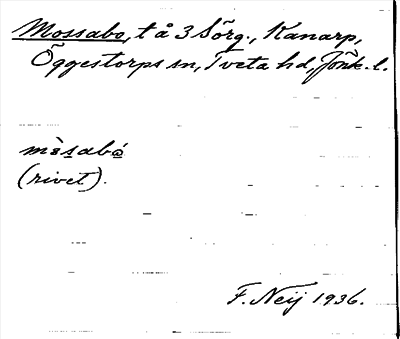 Mossabo, t å 3 Sörg., Kanarp,
Öggestorps sn, Tveta hd, Jönk. l.
mɜ̀sabó
(rivet).
F. Neij 1936.